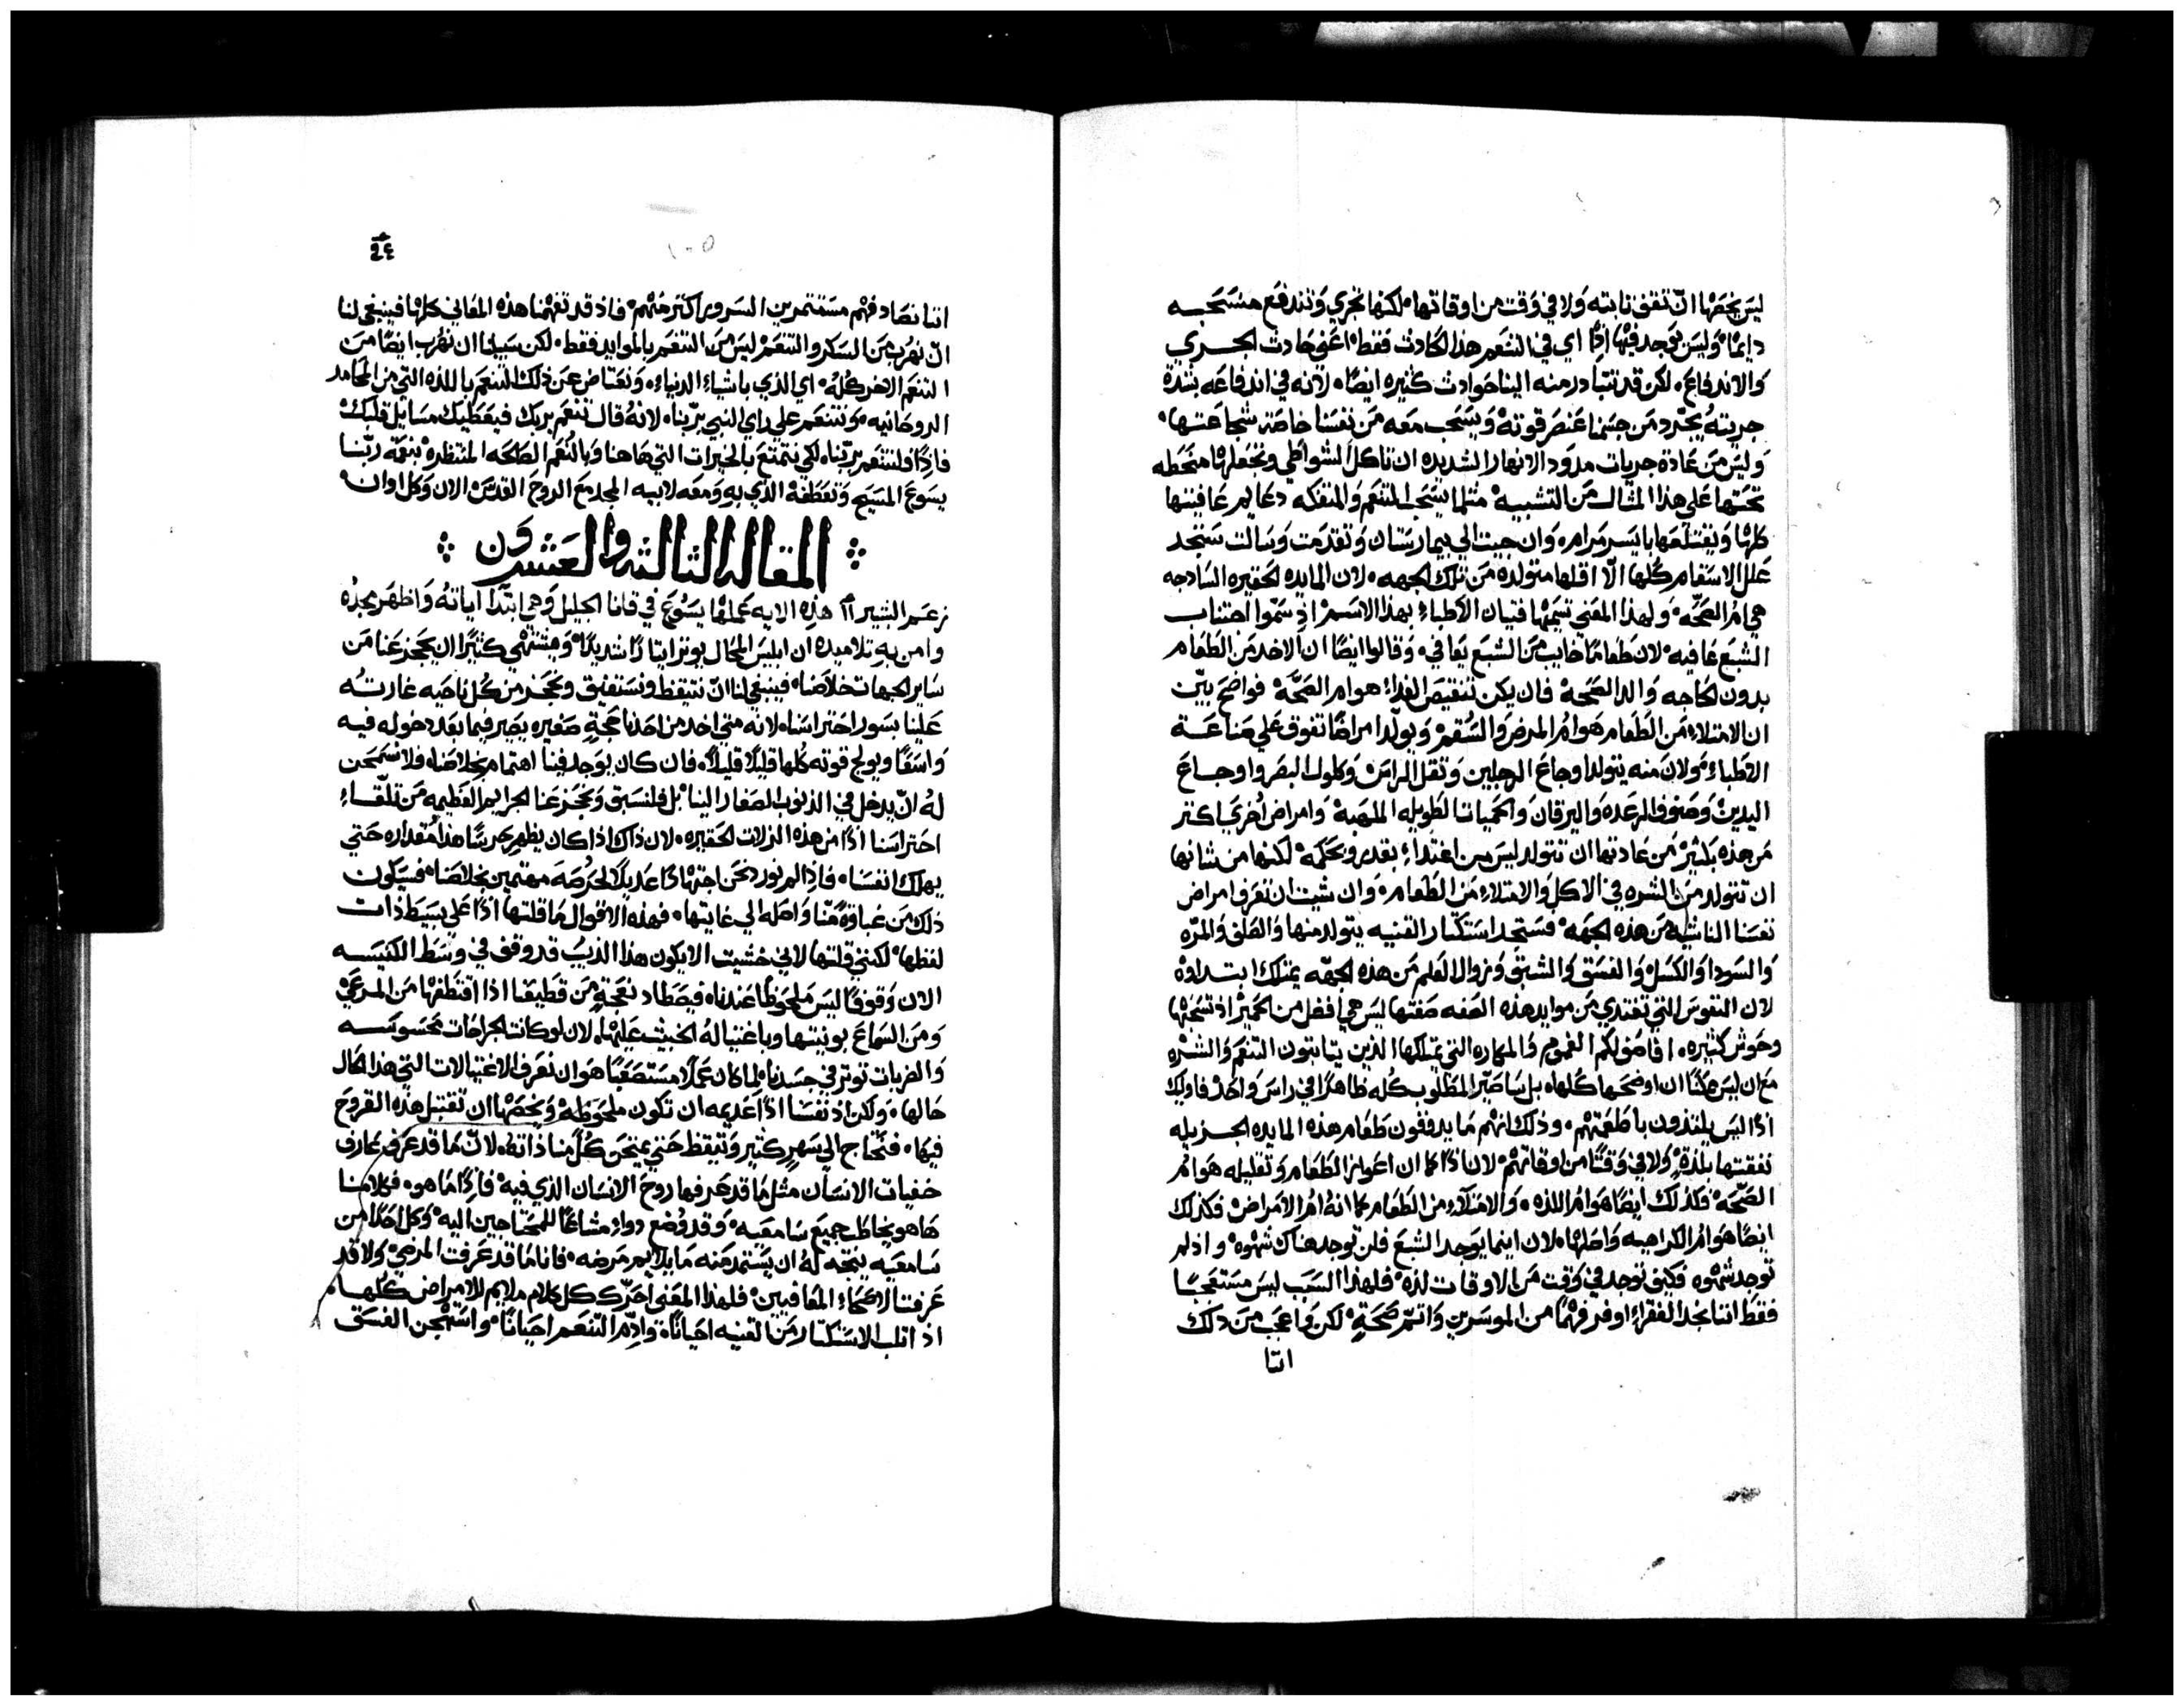 ليس يخصها ان تقف ثابته ولا في وقت من اوقاتها لكنها تجري وتندفع منسحبه
دايمًا وليس يوجد فيها اذًا اي في التنعم هذا الحادث فقط اعني حادث الجري
والاندفاع لكن قد تتبادر منه الينا حوادث كثيره ايضًا لانه في اندفاعه بشدة
جريته يجرد من جسمنا عنصر قوته ويسحب معه من نفسنا خاصة شجاعتها
وليس من عادة جريات مدود الانهار الشديده ان تاكل الشواطي وتجعلها منحطه
تحتها على هذا المثال من التشبيه مثلما يسحب المتنعم والمتفكه دعايم عافيتها
كلها ويقتلعها بايسر مرام وان جيت الي بيمارستان وتقدمت وسالت ستجد
علل الاسقام كلها الّا اقلها متولده من تلك الجهه لان المايده الحقيره الساذجه
هي ام الصحّه ولهذا المعني تسمتها فتيان الاطباء بهذا الاسم اذ سمّوا اجتناب
الشبع عافيه لان طعامًا خايب من الشبع يعافي وقالوا ايضًا ان الاخد من الطعام
بدون الحاجه والد الصحة فان يكن تنقيص الغداء هو ام الصحّة فواضح بيّن
ان الامتلاء من الطعام هو ام المرض والسُقم ويولّد امراضًا تفوق على صناعة
الاطباء ولان منه يتولد اوجاع الرجلين وثقل الراس وكلول البصر واوجاع
اليدين وصنوف الرعده واليرقان والحميات الطويله الملهبة وامراض اخري اكتر
من هذه بكثير من عادتها ان تتولد ليس من اغتداء بقدر وبحكمه لكنها من شانها
ان تتولد من الشره في الاكل والامتلاء من الطعام وان شيت ان تعرف امراض
نفسنا الناشيه من هذه الجهه فستجد استكثار القنيه يتولد منها والصلف والمرّه
والسودا والكسل والفسق والشبق وزوال العلم من هذه الجهّه يمتلك ابتداوه
لان النفوس التي تغتدي من موايد هذه الصفه صفتها ليس هي افضل من الحمير اذ تسحبها
وحوش كثيره افاصف لكم الغموم والمكاره التي يمتلكها الذين يتابتون التنعم والشره
مع ان ليس ممكنًا ان اوضحها كلها بل ساصيّر المطلوب كله ظاهرًا في راس واحد فاوليك
اذًا ليس يلتذون باطعمتهم وذلك انهم ما يدوقون طعام هذه المايده الجزيله
نفقتها بلذة ولا في وقتًا من اوقاتهم لان اذًا كما ان اعواز الطعام وتقليله هو ام
الصحّة فكذلك ايضًا هو ام اللذه والامتلاء من الطعام كما انه ام الامراض فكذلك
ايضًا هو ام الكراهيه واصلها لان اينما يوجد الشبع فلن توجد هناك شهوه واذ لم
توجد شهوه فكيف توجد في وقت من الاوقات لذه فلهذا السبب ليس مستعجبًا
فقط اننا نجد الفقراء اوفر فهمًا من الموسرين واتمّ صحة لكن واعجب من ذلك
اننا
٩٤
١٠٥
اننا نصادفهم مستثمرين السرور اكثر منهم فاذ قد تفهمنا هذه المعاني كلها فينبغي لنا
ان نهرب من السكر والتنعم ليس من التنعم بالموايد فقط لكن سبيلنا ان نهرب ايضًا من
التنعم الاخر كله اي الذي باشياء الدنيا ونعتاض عن ذلك التنعم باللذه التي من المحامد
الروحانيه ونتنعم علي راي النبي بربّنا لانه قال تنعم بربك فيعطيك مسايل قلبك
فاذًا فلنتنعم بربّنا لكي نتمتع بالخيرات التي هاهنا وبالنعم الصالحه المنتظره بنعمة ربّنا
يسوع المسيح وتعطفه الذي به ومعه لابيه المجد مع الروح القدس الان وكل اوان
المقاله الثالثه والعشرون
زعم البشير هذه الايه عملها يسوع في قانا الجليل وهي ابتدا اياته واظهر مجده
وامن به تلاميده ان ابليس المحال يوتر ايتارًا شديدًا ويشتهي كثيرًا ان يحجز عنا من
ساير الجهات خلاصنا فينبغي لنا ان نتيقظ ونستفيق ونحجز من كل ناحيه غارته
علينا بسور احتراسنا لانه متي اخد من احدنا حجة صغيره يصير فيما بعد دخوله فيه
واسعًا ويولج قوته كلها قليلًا قليلًا فان كان يوجد فينا اهتمام بخلاصنا فلا نسمحن
له ان يدخل في الذنوب الصغار الينا بل فلنسبق ونحجز عنا الجرايم العظيمه من تلقاء
احتراسنا اذًا من هذه الزلات الحقيره لان ذاك اذا كان يظهر حرصًا هذا مقداره حتي
يهلك انفسنا فاذا لم نورد نحن اجتهادًا عديلًا لحرصه مهتمين بخلاصنا فسيكون
ذلك من غباوة منّا واصله الي غايتها فهذه الاقوال ما قلتها اذًا علي بسيط ذات
لفظها لكنني قلتها لاني خشيت الا يكون هذا الذيب قد وقف في وسط الكنيسه
الان وقوفًا ليس ملحوظًا عندنا فيصطاد نعجة من قطيعنا اذا اقتطفها من المرعي
ومن السماع بونيتها وباغتياله الخبيث عليها لان لو كانت الجراحات محسوسه
والضربات توتر في جسدنا لما كان عملًا مستصعبًا هو ان نعرف الاغتيالات التي هذا الحال
حالها ولكن اذ نفسنا اذًا عديمه ان تكون ملحوظه ويخصها ان تقتبل هذه القروح
فيها فنحتاج الي سهر كثير وتيقظ حتي يمتحن كل منا ذاته لان ما قد عرف عارف
خفيات الانسان مثل ما قد عرفها روح الانسان الذي فيه فاذًا ما هو فكلامنا
هاهو يخاطب جميع سامعيه وقد وُضع دواء مشاعًا للمحتاجين اليه وكل احدًا من
سامعيه يتجه له ان يستمد منه ما يلايم مرضه فانا ما قد عرفت المرضي ولا قد
عرفت الاصحاء المعافين فلهذا المعني احرّك كل كلام ملايم للامراض كلها
اذ اتلب الاستكثار من القنيه احيانًا واذمّ التنعم احيانًا واستهجن الفسق